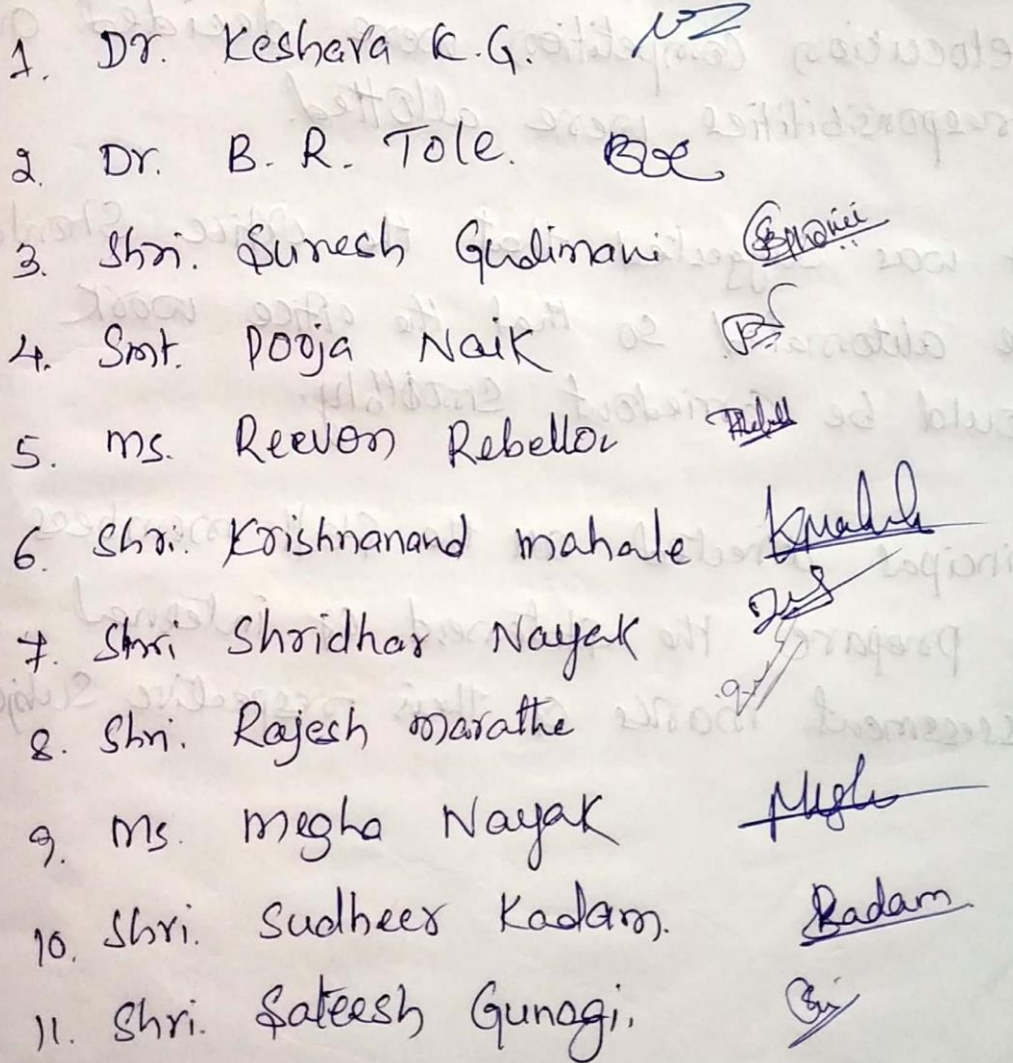 1. Dr. Keshava K.G.
2. Dr. B. R. Tole.
3. Shri. Suresh Gudimani
4. Smt. Pooja Naik
5. Ms. Reevon Rebello
6 Shri. Krishnanand Mahale
7. Shri Shridhar Nayak
8. Shri. Rajesh Marathe
9. Ms. Megha Nayak
10. Shri. Sudheer Kadam. Badam
11. Shri. Sateesh Gunagi.